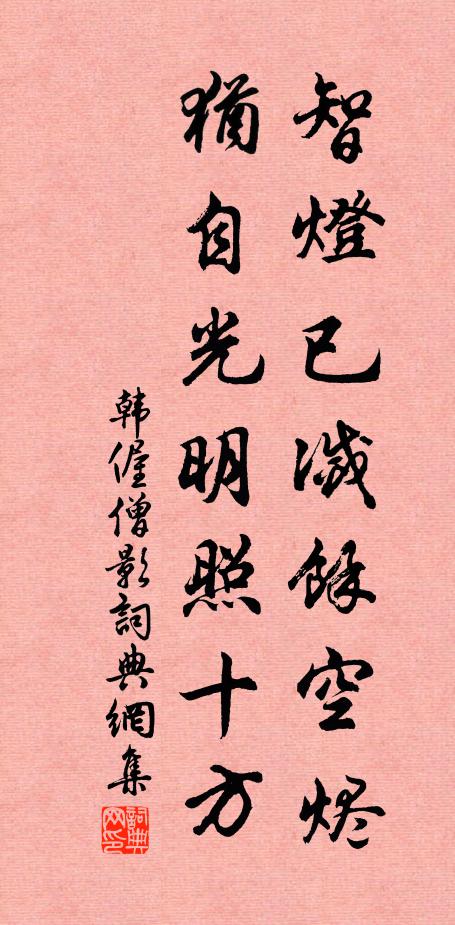 智燈已滅餘空燼
猶自光明照十方
韩偓僧影詞典網集
詞典网印